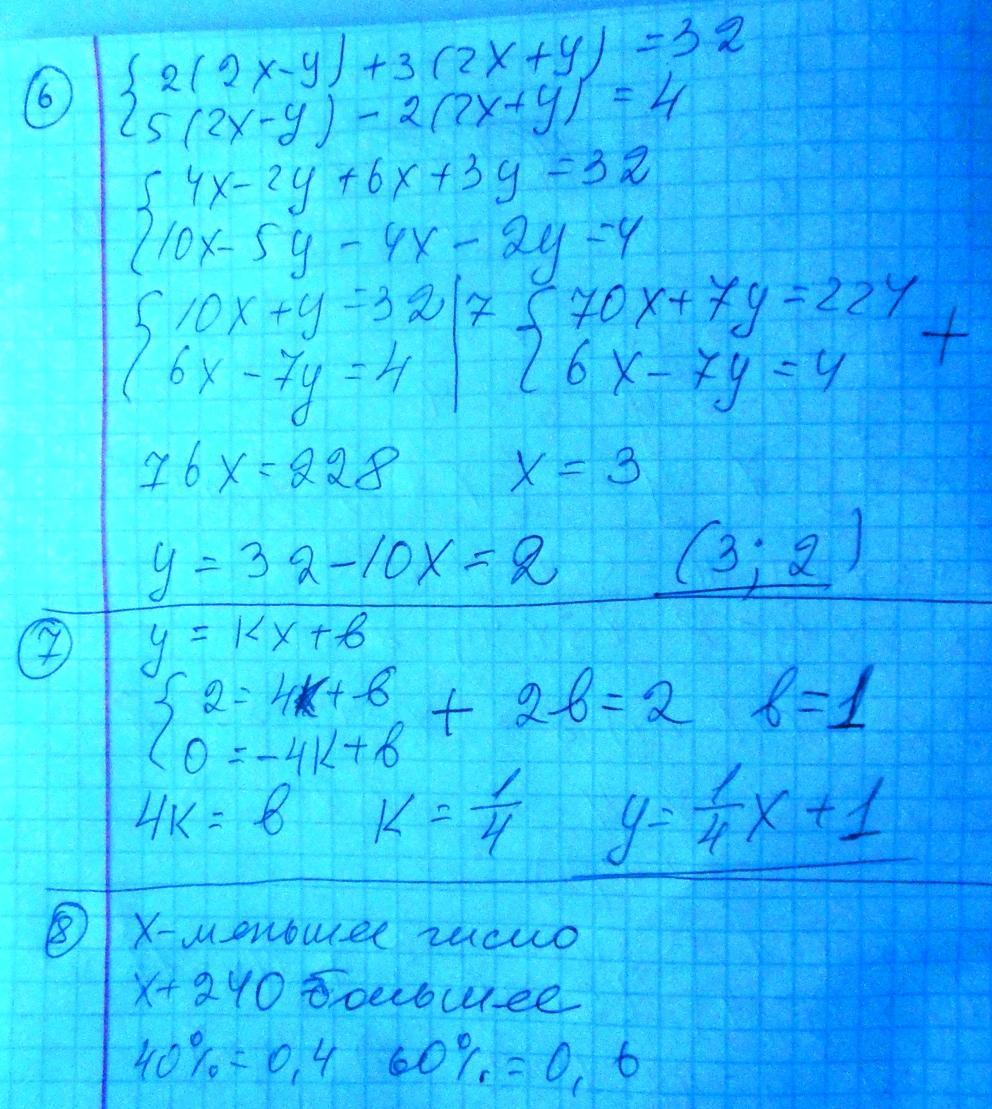 6 { 2(2x-y) + 3(2x+y) = 32
5(2x-y) - 2(2x+y) = 4
{ 4x-2y+6x+3y=32
10x-5y-4x-2y=4
{ 10x+y=32 | 7 { 70x+7y=224 +
6x-7y=4 | 6x-7y=4
76x=228 x=3
y=32-10x=2 (3;2)
7 y=kx+b
{ 2=4k+b + 2b=2 b=1
0=-4k+b
4k=b k=1/4 y=1/4x+1
8 x-меньшее число
x+240 большее
40%=0,4 60%=0,6